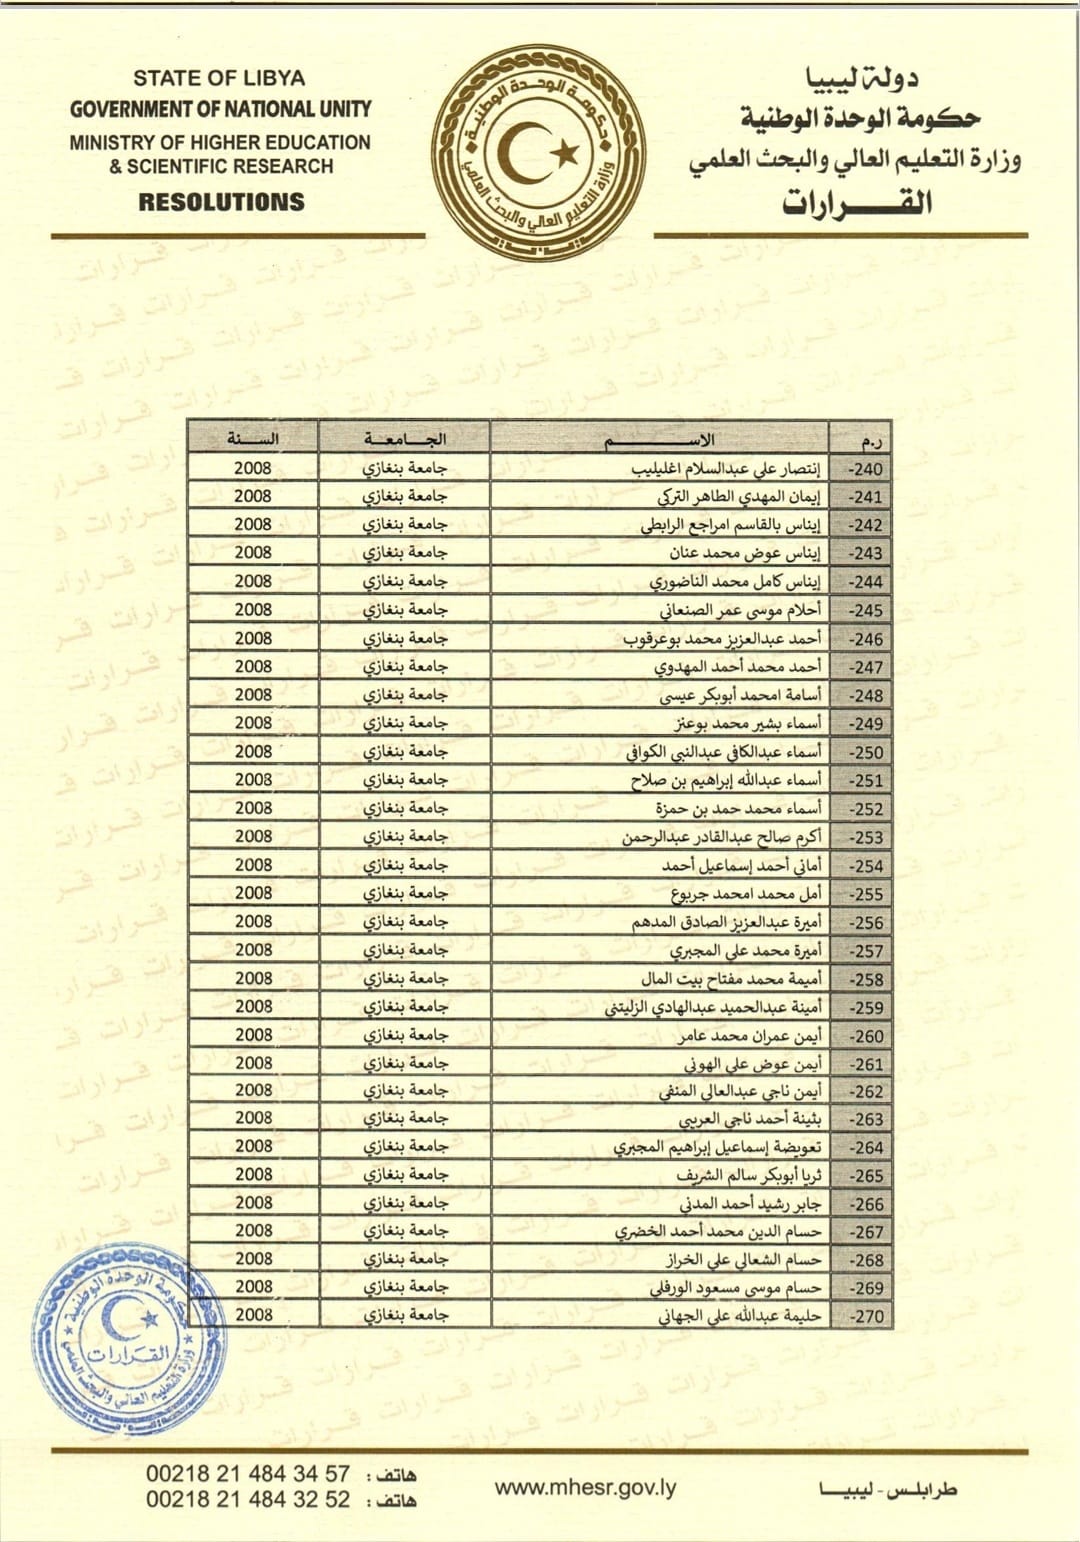 STATE OF LIBYA
GOVERNMENT OF NATIONAL UNITY
MINISTRY OF HIGHER EDUCATION
& SCIENTIFIC RESEARCH
RESOLUTIONS
دولة ليبيا
حكومة الوحدة الوطنية
وزارة التعليم العالي والبحث العلمي
القـــرارات
حكومة الوحدة الوطنية
وزارة التعليم العالي والبحث العلمي
ر.م الاســـــم الجـــامعـــة الســـنة
240- إنتصار علي عبدالسلام اغليليب جامعة بنغازي 2008
241- إيمان المهدي الطاهر التركي جامعة بنغازي 2008
242- إيناس بالقاسم امراجع الرابطي جامعة بنغازي 2008
243- إيناس عوض محمد عنان جامعة بنغازي 2008
244- إيناس كامل محمد الناضوري جامعة بنغازي 2008
245- أحلام موسى عمر الصنعاني جامعة بنغازي 2008
246- أحمد عبدالعزيز محمد بوعرقوب جامعة بنغازي 2008
247- أحمد محمد أحمد المهدوي جامعة بنغازي 2008
248- أسامة امحمد أبوبكر عيسى جامعة بنغازي 2008
249- أسماء بشير محمد بوعنز جامعة بنغازي 2008
250- أسماء عبدالكافي عبدالنبي الكوافي جامعة بنغازي 2008
251- أسماء عبدالله إبراهيم بن صلاح جامعة بنغازي 2008
252- أسماء محمد حمد بن حمزة جامعة بنغازي 2008
253- أكرم صالح عبدالقادر عبدالرحمن جامعة بنغازي 2008
254- أماني أحمد إسماعيل أحمد جامعة بنغازي 2008
255- أمل محمد امحمد جربوع جامعة بنغازي 2008
256- أميرة عبدالعزيز الصادق المدهم جامعة بنغازي 2008
257- أميرة محمد علي المجبري جامعة بنغازي 2008
258- أميمة محمد مفتاح بيت المال جامعة بنغازي 2008
259- أمينة عبدالحميد عبدالهادي الزليتني جامعة بنغازي 2008
260- أيمن عمران محمد عامر جامعة بنغازي 2008
261- أيمن عوض علي الهوني جامعة بنغازي 2008
262- أيمن ناجي عبدالعالي المنفي جامعة بنغازي 2008
263- بثينة أحمد ناجي العريبي جامعة بنغازي 2008
264- تعويضة إسماعيل إبراهيم المجبري جامعة بنغازي 2008
265- ثريا أبوبكر سالم الشريف جامعة بنغازي 2008
266- جابر رشيد أحمد المدني جامعة بنغازي 2008
267- حسام الدين محمد أحمد الخضري جامعة بنغازي 2008
268- حسام الشعالي علي الخراز جامعة بنغازي 2008
269- حسام موسى مسعود الورفلي جامعة بنغازي 2008
270- حليمة عبدالله علي الجهاني جامعة بنغازي 2008
حكومة الوحدة الوطنية
القـرارات
وزارة التعليم العالي والبحث العلمي
هاتف : 00218 21 484 34 57
هاتف : 00218 21 484 32 52
www.mhesr.gov.ly
طرابلس - ليبيـــا